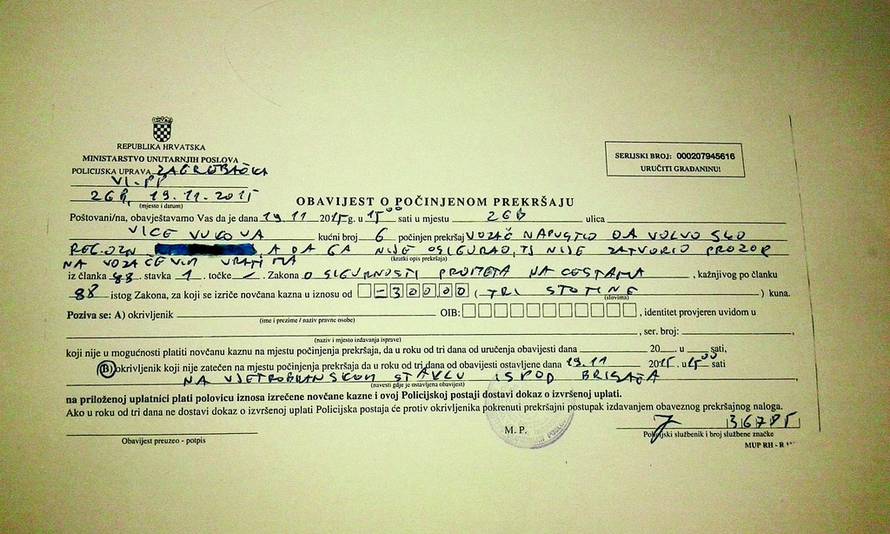 REPUBLIKA HRVATSKA
MINISTARSTVO UNUTARNJIH POSLOVA
POLICIJSKA UPRAVA ZAGREBAČKA
VI.PP
ZGB, 19.11.2015
(mjesto i datum)
SERIJSKI BROJ: 000207945616
URUČITI GRAĐANINU!
OBAVIJEST O POČINJENOM PREKRŠAJU
Poštovani/na, obavještavamo Vas da je dana 19.11 2015.g. u 15 00 sati u mjestu ZGB ulica
VICE VUKOVA kućni broj 6 počinjen prekršaj VOZAČ NAPUSTIO DA VOLVO S60
REG.OZN A DA GA NIJE OSIGURAO, TJ NIJE ZATVORIO PROZOR
NA VOZAČEVIM VRATIMA
(kratki opis prekršaja)
iz članka 88. stavka 1. točke - . Zakona O SIGURNOSTI PROMETA NA CESTAMA , kažnjivog po članku
88 istog Zakona, za koji se izriče novčana kazna u iznosu od -30000 ( TRI STOTINE ) kuna.
(slovima)
Poziva se: A) okrivljenik OIB: , identitet provjeren uvidom u
(ime i prezime / naziv pravne osobe)
, ser. broj: ,
(naziv i mjesto izdavanja isprave)
koji nije u mogućnosti platiti novčanu kaznu na mjestu počinjenja prekršaja, da u roku od tri dana od uručenja obavijesti dana 20 . u sati,
B) okrivljenik koji nije zatečen na mjestu počinjenja prekršaja da u roku od tri dana od obavijesti ostavljene dana 19.11 2015. u 15 00 sati
NA VJETROBRANSKOM STAKLU ISPOD BRISAČA
(navesti gdje je ostavljena obavijest)
na priloženoj uplatnici plati polovicu iznosa izrečene novčane kazne i ovoj Policijskoj postaji dostavi dokaz o izvršenoj uplati.
Ako u roku od tri dana ne dostavi dokaz o izvršenoj uplati Policijska postaja će protiv okrivljenika pokrenuti prekršajni postupak izdavanjem obaveznog prekršajnog naloga.
Obavijest preuzeo - potpis
M. P.
36785
Policijski službenik i broj službene značke
MUP RH - R